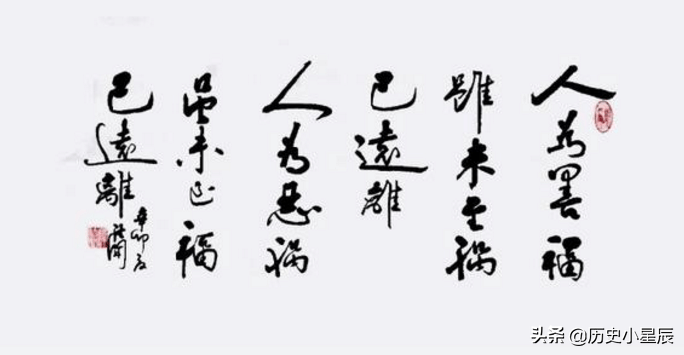 人为善福
雖未至祸
已遠離
人为恶祸
虽未至福
已遠離
辛卯夏
头条 @历史小星辰